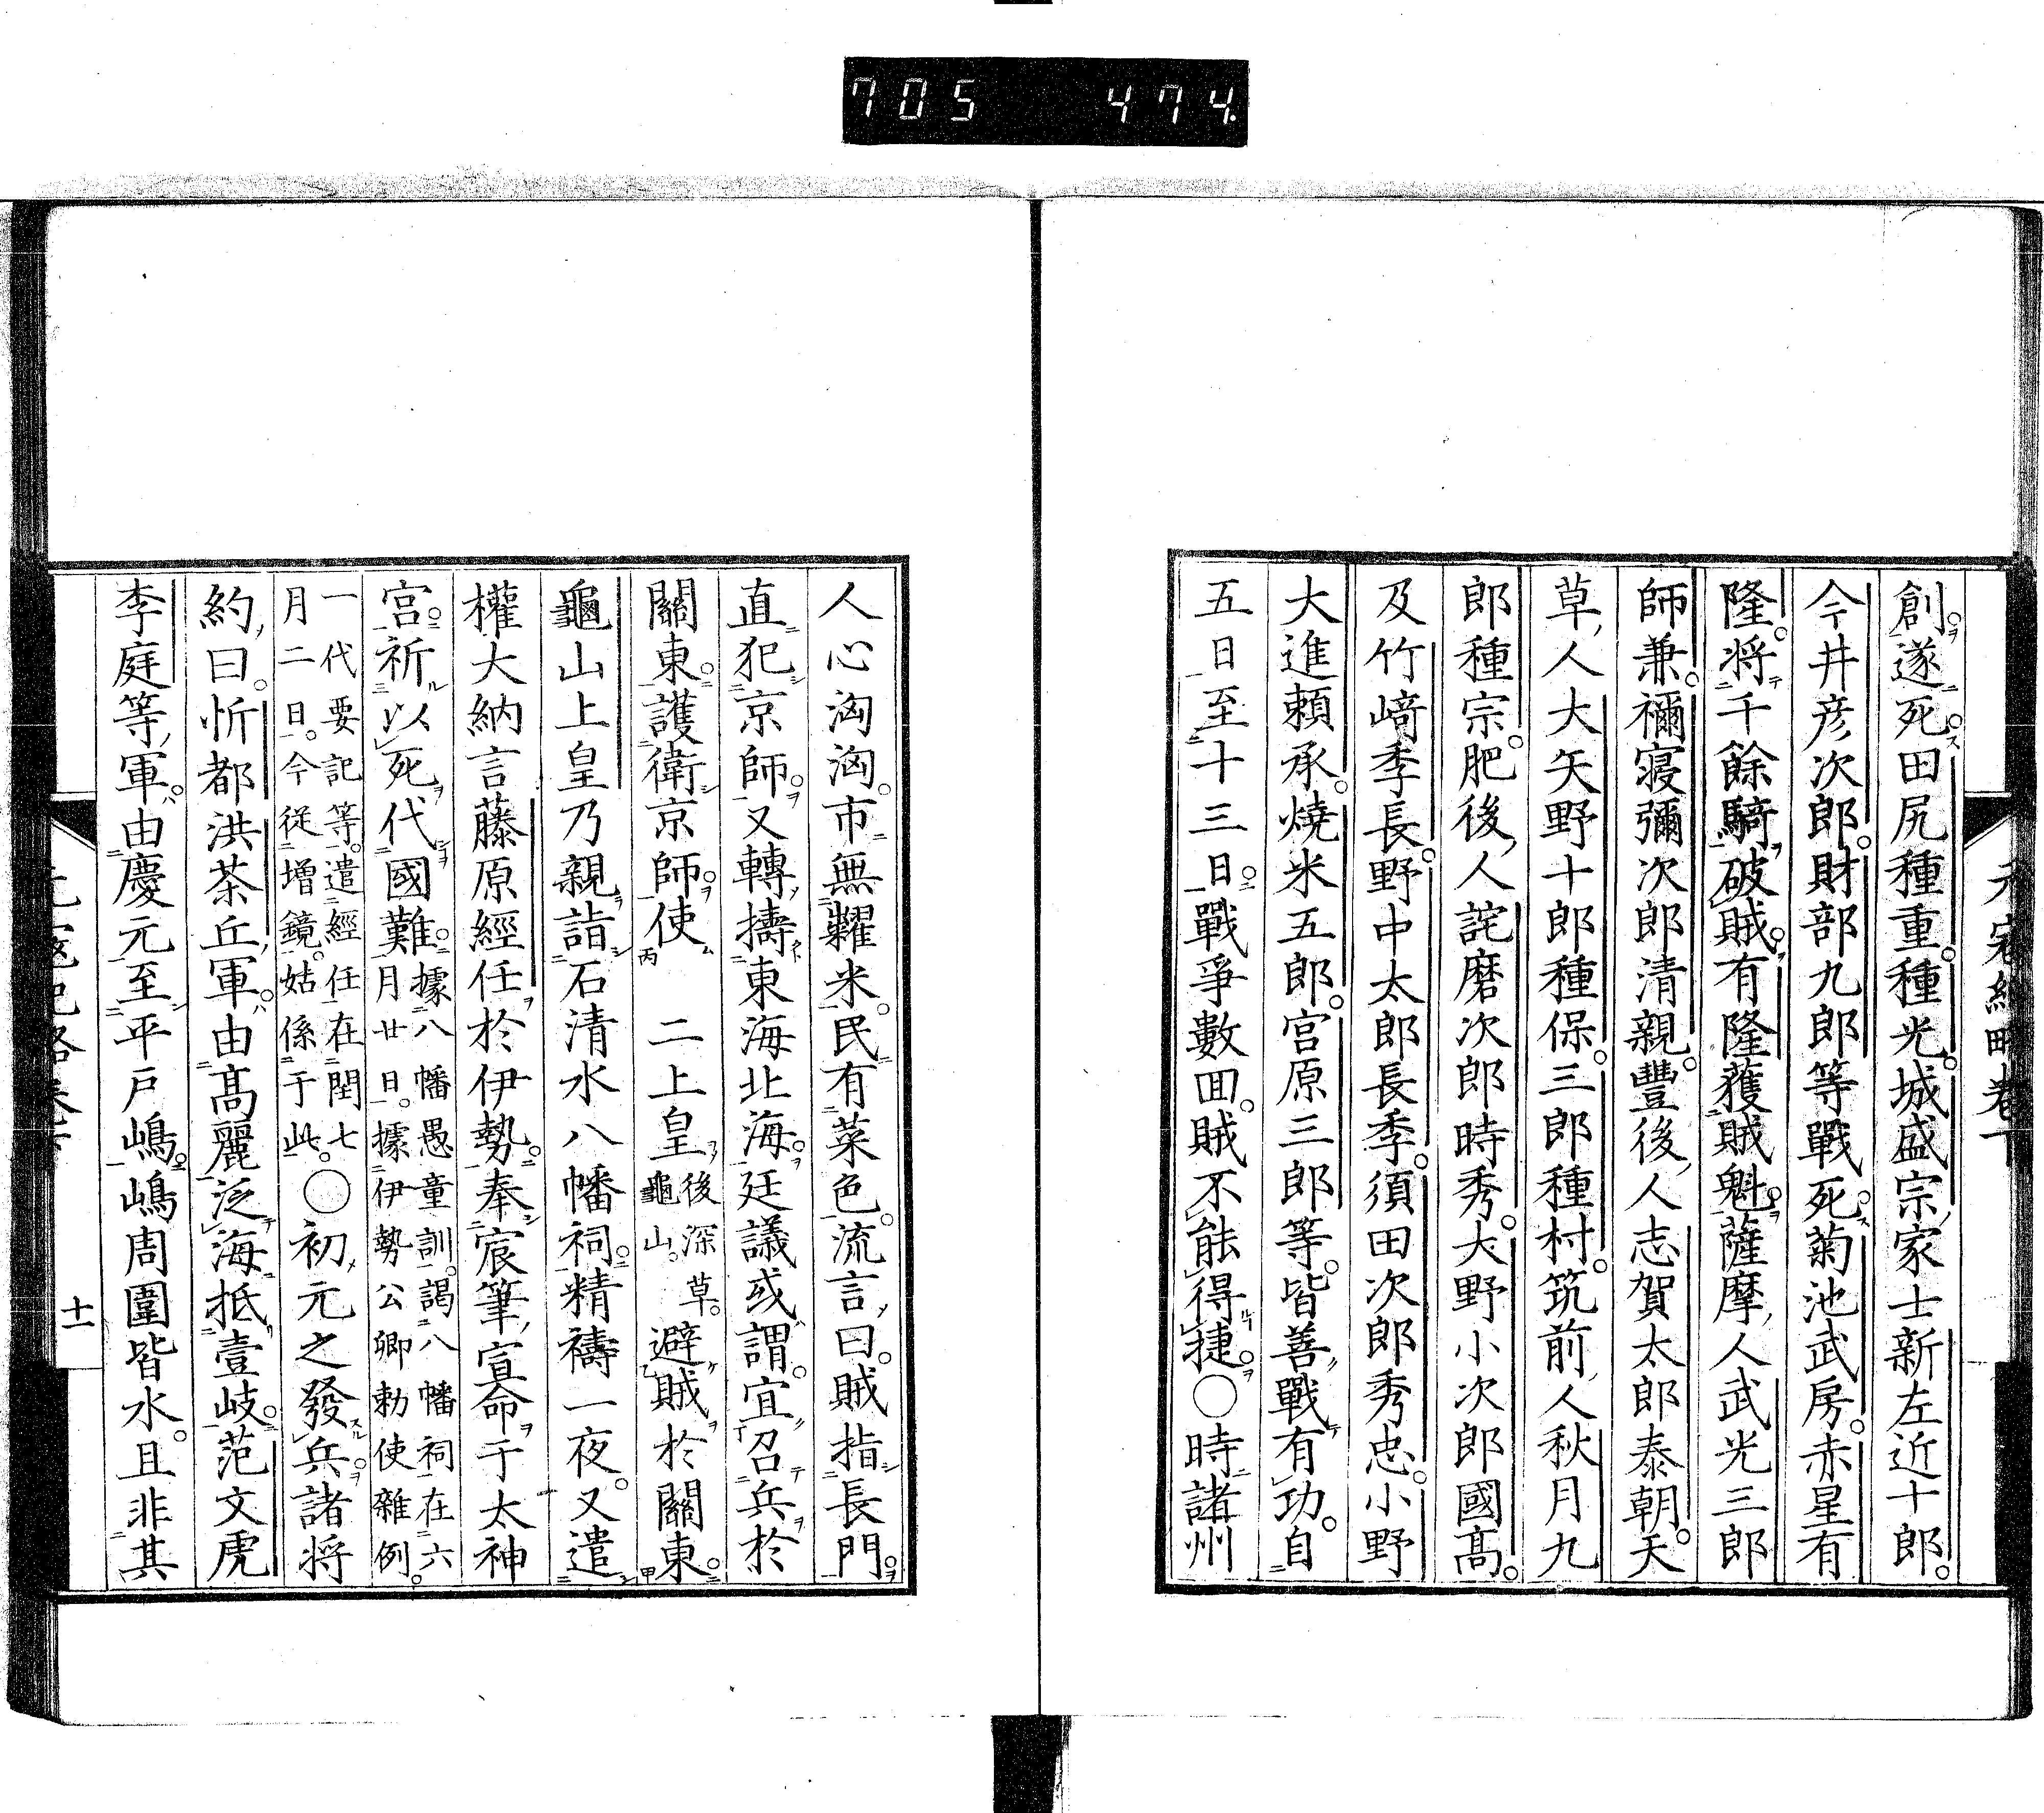 705 474
元寇紀略卷下
創遂死田尻種重。種光城盛宗家士新左近十郎。
今井彦次郎。財部九郎等戰死。菊池武房。赤星有
隆。將千餘騎破賊。有隆獲賊魁。薩摩人武光三郎
師兼。禰寢彌次郎清親。豐後人志賀太郎泰朝。天
草人大矢野十郎種保。三郎種村。筑前人秋月九
郎種宗。肥後人詫磨次郎時秀。大野小次郎國高。
及竹﨑季長。野中太郎長季。須田次郎秀忠。小野
大進賴承。燒米五郎。宮原三郎等。皆善戰有功。自
五日至十三日。戰爭數回。賊不能得捷。○時諸州
人心洶洶。市無糶米。民有菜色。流言曰。賊指長門。
直犯京師。又轉擣東海北海。廷議或謂。宜召兵於
關東。護衛京師。使 二上皇後深草。龜山。避賊於關東。
龜山上皇乃親詣石清水八幡祠。精禱一夜。又遣
權大納言藤原經任於伊勢。奉宸筆宣命于太神
宮。祈以死代國難。據八幡愚童訓。謁八幡祠在六
月廿日。據伊勢公卿勅使雜例。
一代要記等。遣經任在閏七
月二日。今從增鏡。姑係于此。○初元之發兵。諸將
約曰。忻都洪茶丘軍。由高麗泛海抵壹岐。范文虎
李庭等軍。由慶元至平戶嶋。嶋周圍皆水。且非其
十一